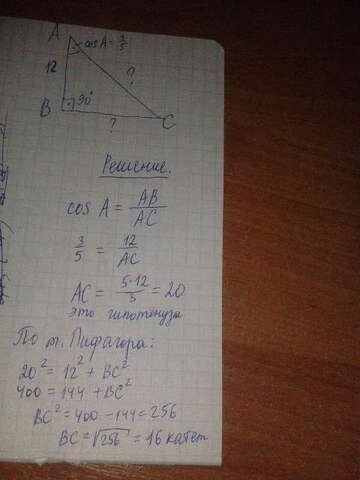 A
cos A = 3/5
12
?
B
90°
?
C
Решение.
cos A = AB/AC
3/5 = 12/AC
AC = 5·12/3 = 20
это гипотенуза
По т. Пифагора:
20² = 12² + BC²
400 = 144 + BC²
BC² = 400 - 144 = 256
BC = √256 = 16 катет